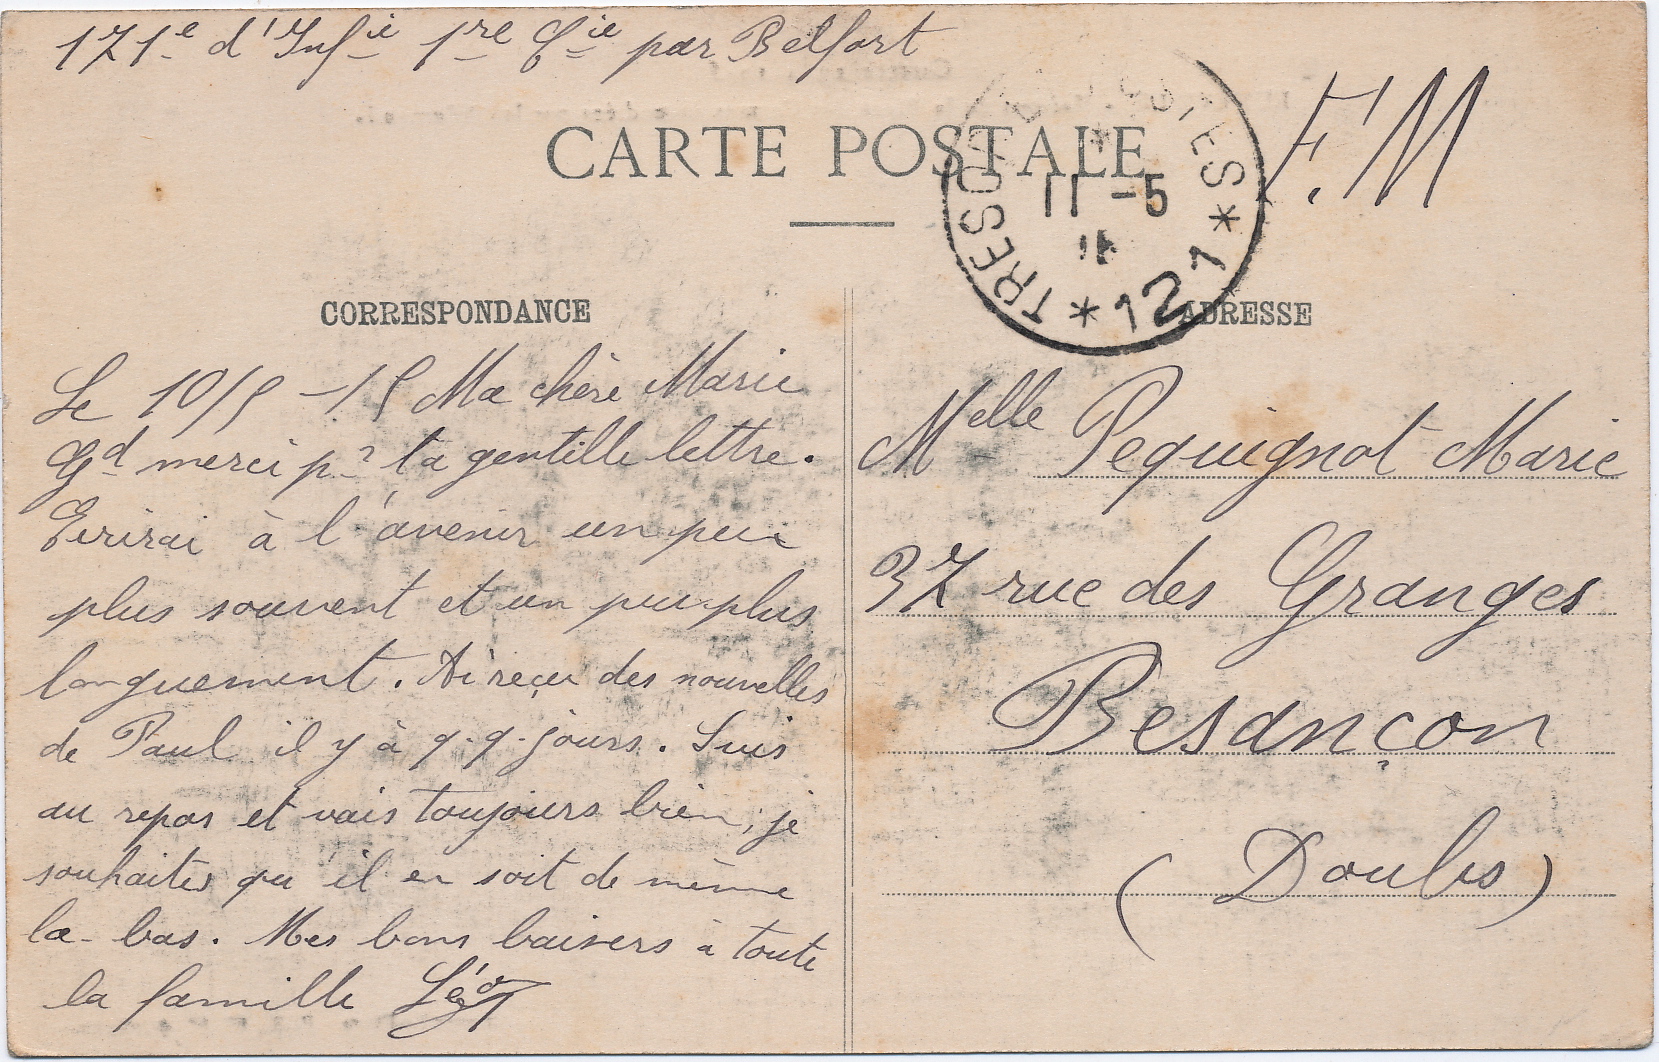 171e d'Infie 1re Cie par Belfort
F.M
CARTE POSTALE
TRESOR ET POSTES
11 -5
* 121 *
CORRESPONDANCE
ADRESSE
Le 10/5 -15 Ma chère Marie
Gd merci pr ta gentille lettre.
Ecrirai à l'avenir un peu
plus souvent et un peu plus
longuement. Ai reçu des nouvelles
de Paul il y à q.q. jours. Suis
au repos et vais toujours bien, je
souhaites qu'il en soit de même
la-bas. Mes bons baisers à toute
la famille Léo
Melle Pequignot Marie
37 rue des Granges
Besançon
(Doubs)